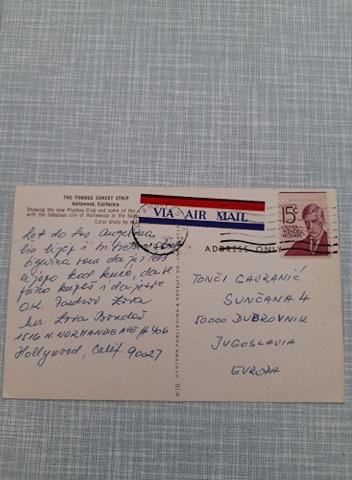 THE FAMOUS SUNSET STRIP
Hollywood, California
Showing the new Playboy Club and some of the
with the fabulous city of Hollywood in the
Color photo by
VIA AIR MAIL
15¢
OLIVER
WENDELL
HOLMES
ADDRESS ONLY
Let do Los Angelesa
bio lijep i
Sigurna sam da je
lijepo kod kuće, da se
i da
Zora
Mrs. Zora
1516 N. NORMANDIE AVE # 406
Hollywood, Calif. 90027
WESTERN PUBLISHING & NOVELTY CO.
TONČI GAVRANIĆ
SUNČANA 4
50000 DUBROVNIK
JUGOSLAVIA
EVROPA